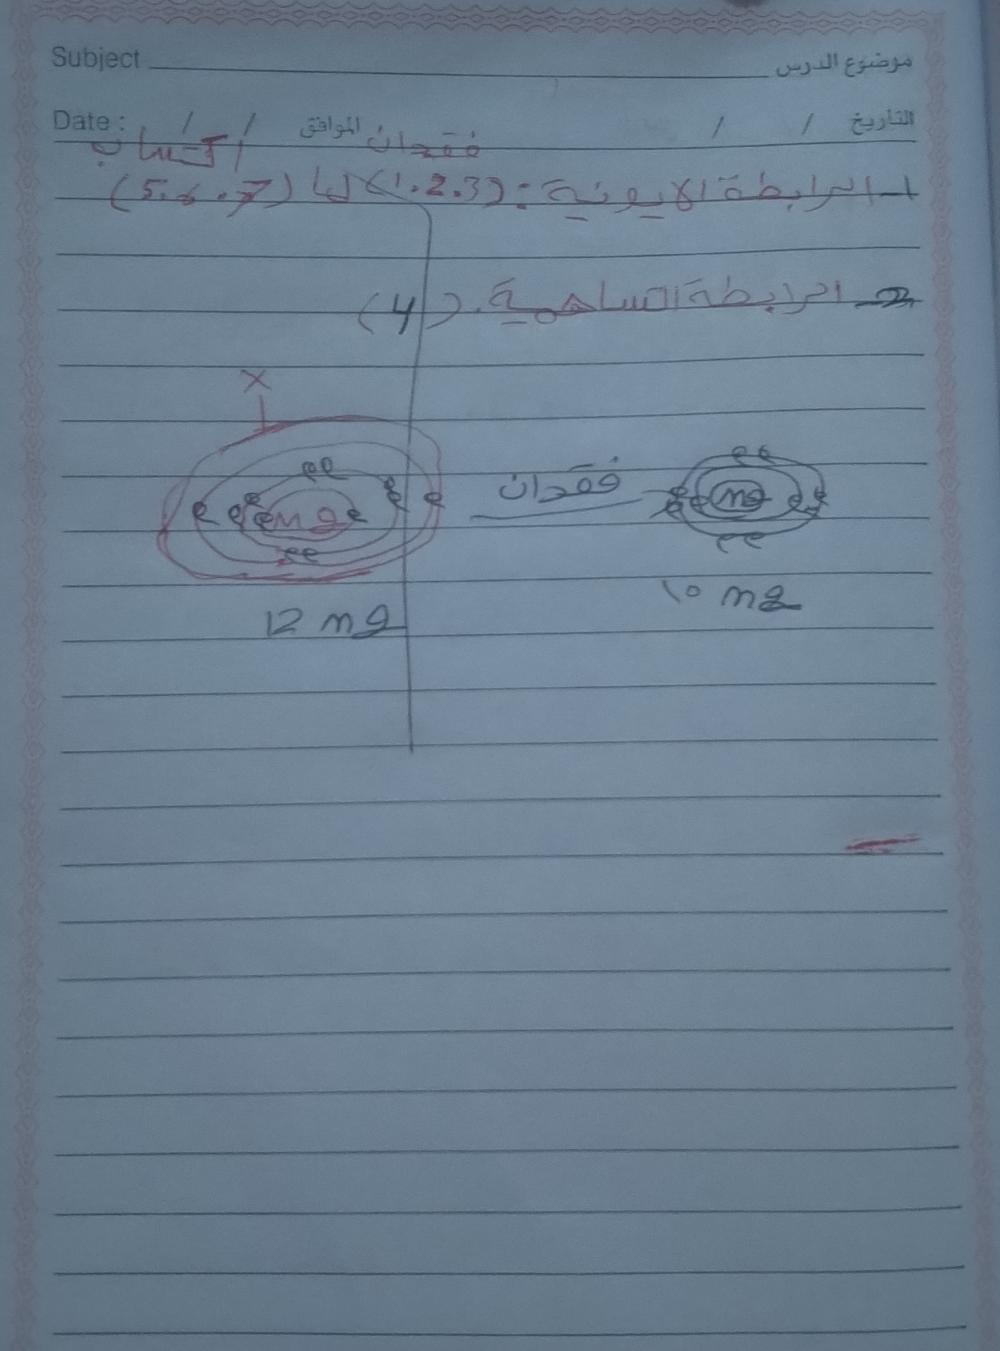 Subject موضوع الدرس
Date : / / الموافق / / التاريخ
فقدان / اكتساب
1- الرابطة الايونية : (1.2.3) (5.6.7)
2- الرابطة التساهمية. (4)
X
e e e e e e e e e e e e Mg
فقدان
e e e e e e e e e e Mg
12 mg
10 mg